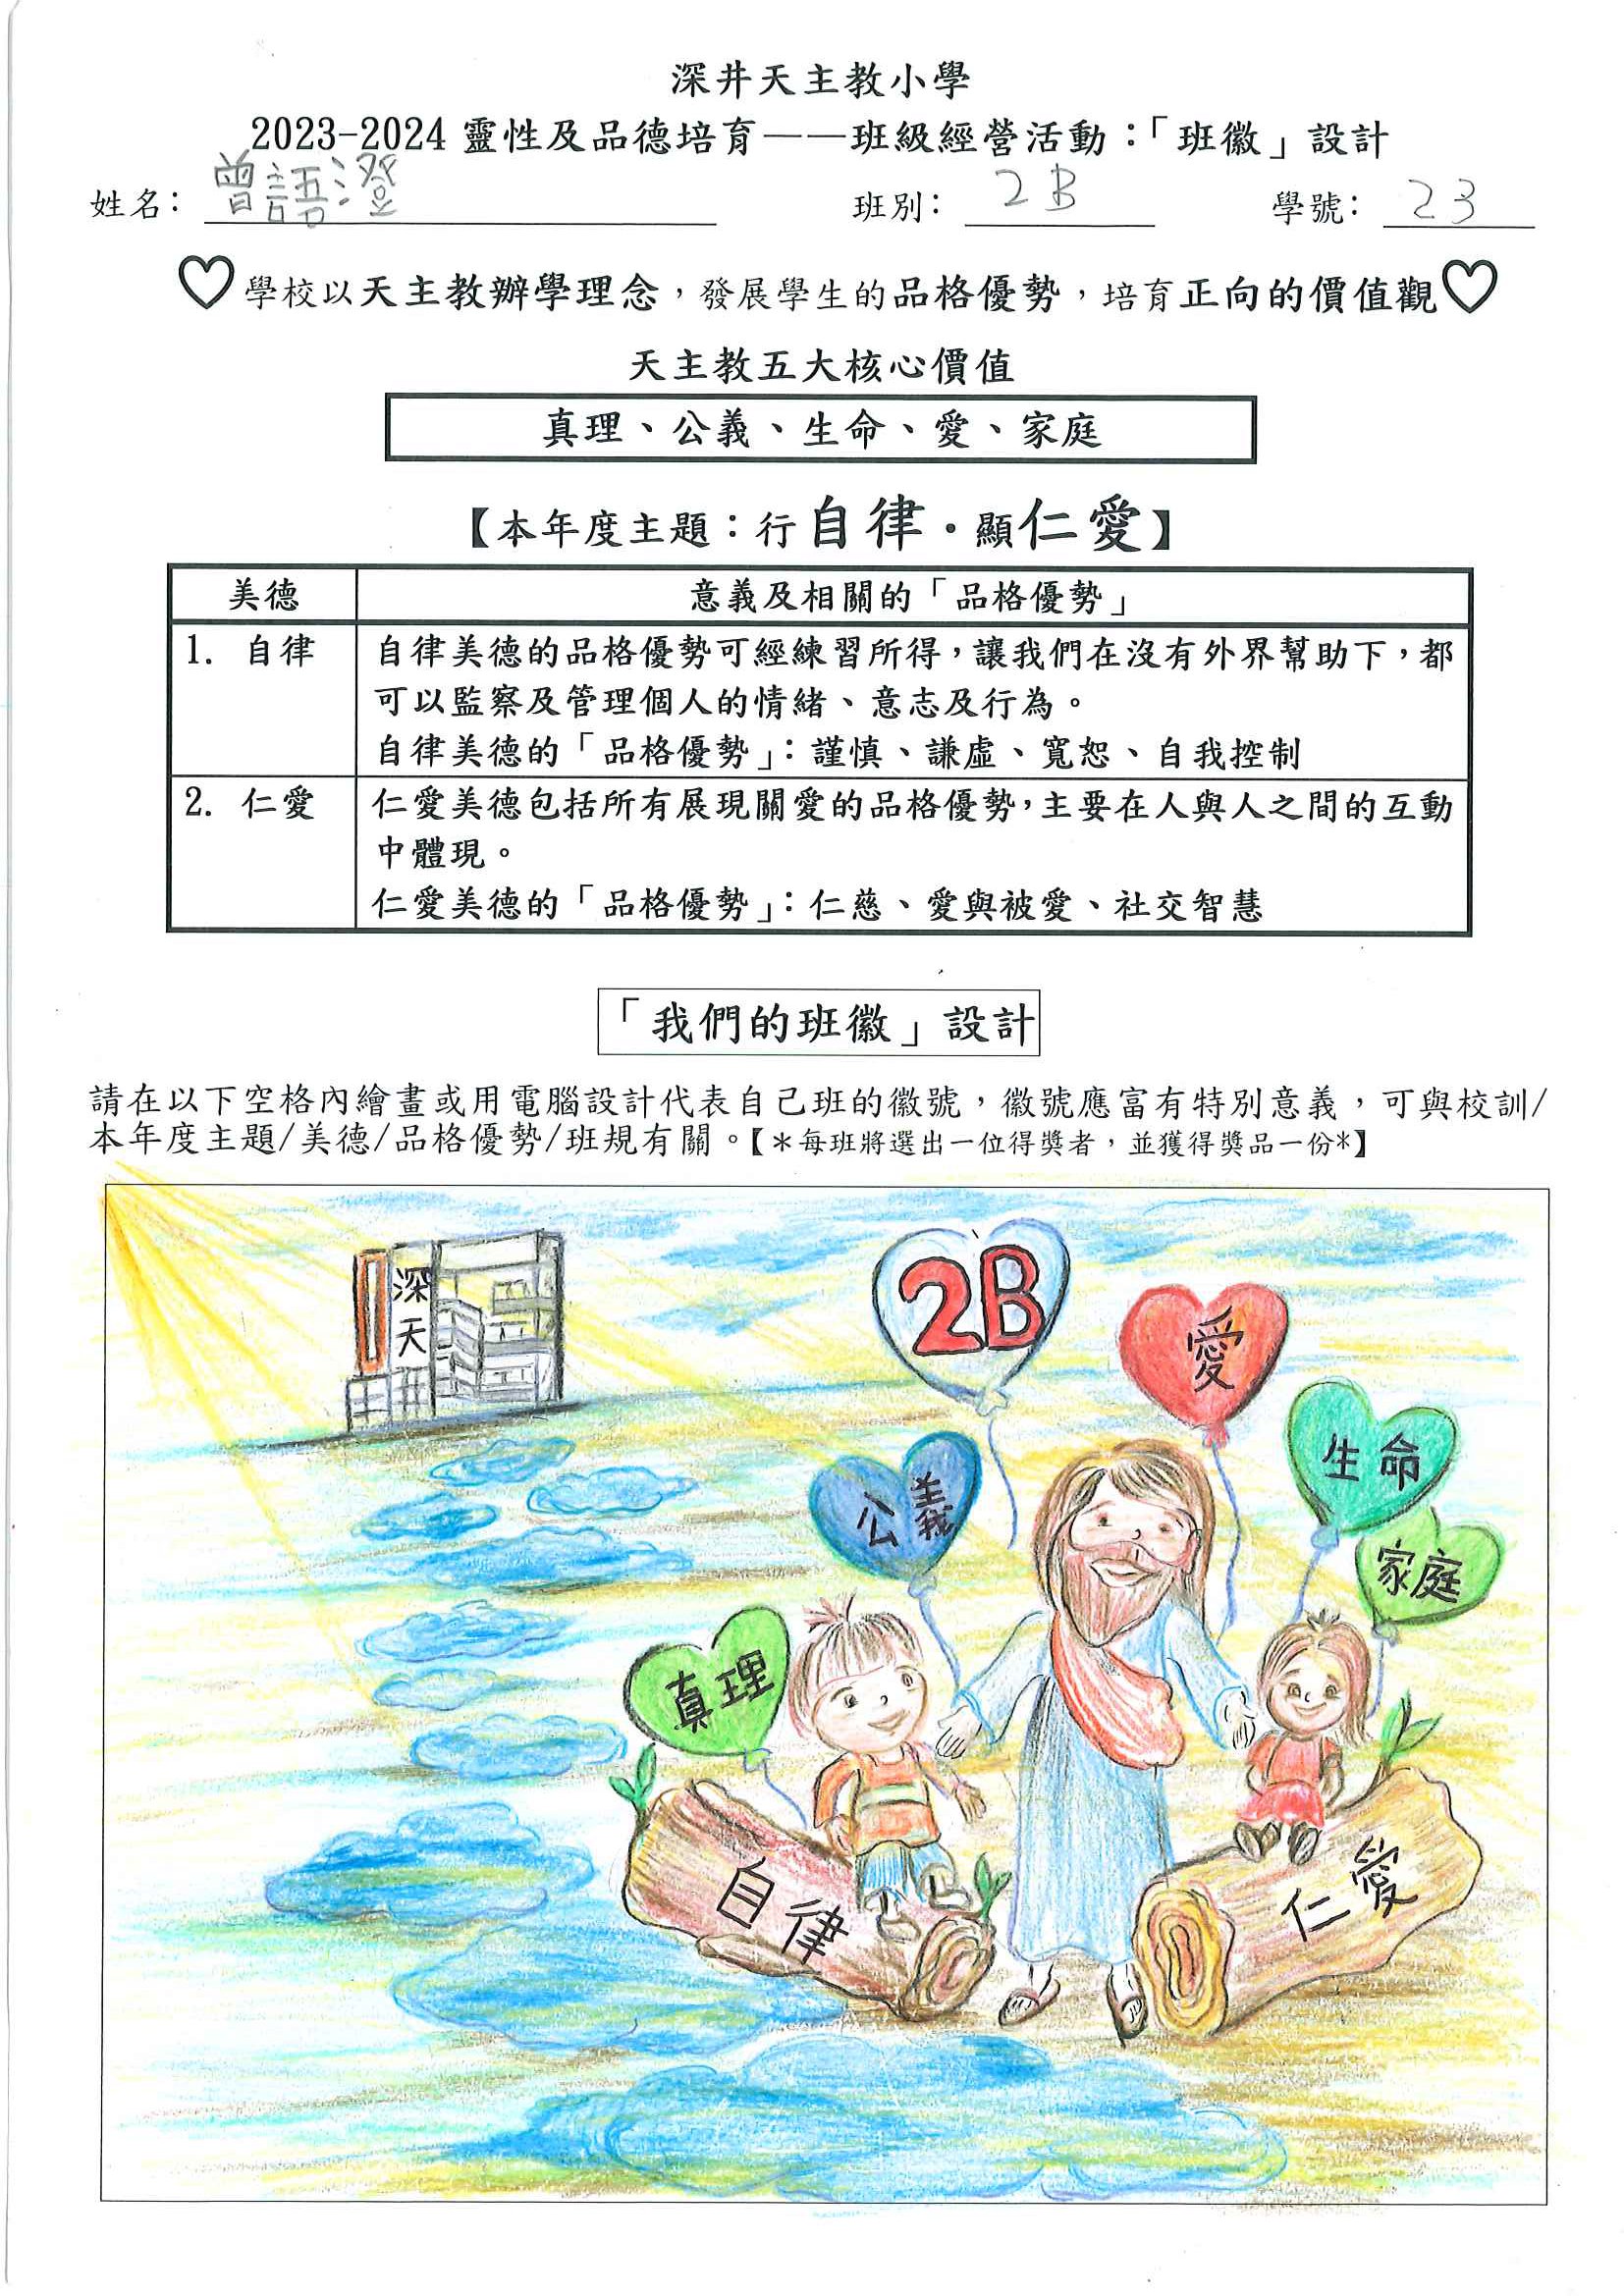 深井天主教小學
2023-2024 靈性及品德培育——班級經營活動：「班徽」設計
姓名： 曾語澄 班別： 2B 學號： 23
學校以天主教辦學理念，發展學生的品格優勢，培育正向的價值觀
天主教五大核心價值
真理、公義、生命、愛、家庭
【本年度主題：行自律．顯仁愛】
美德 意義及相關的「品格優勢」
1. 自律 自律美德的品格優勢可經練習所得，讓我們在沒有外界幫助下，都
可以監察及管理個人的情緒、意志及行為。
自律美德的「品格優勢」：謹慎、謙虛、寬恕、自我控制
2. 仁愛 仁愛美德包括所有展現關愛的品格優勢，主要在人與人之間的互動
中體現。
仁愛美德的「品格優勢」：仁慈、愛與被愛、社交智慧
「我們的班徽」設計
請在以下空格內繪畫或用電腦設計代表自己班的徽號，徽號應富有特別意義，可與校訓/
本年度主題/美德/品格優勢/班規有關。【＊每班將選出一位得獎者，並獲得獎品一份*】
深天
2B
愛
生命
公義
家庭
真理
自律
仁愛